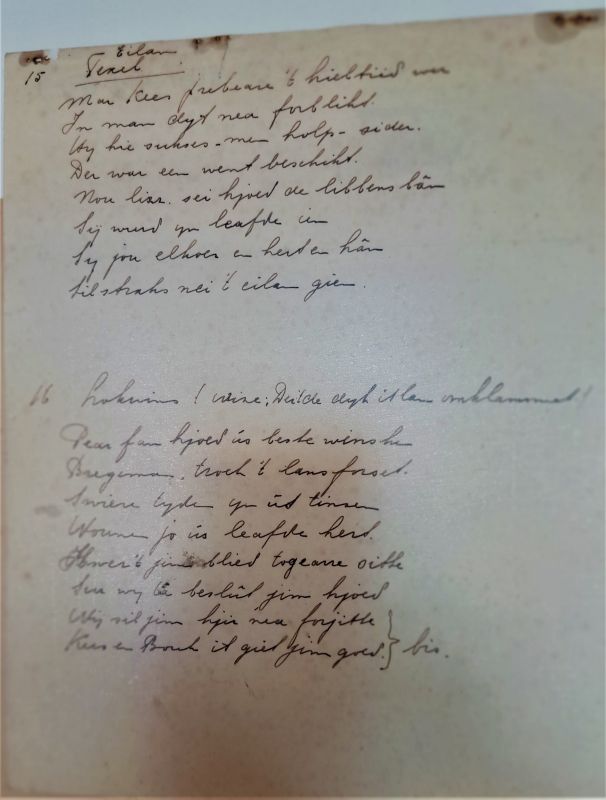 Eilan
15 Texel
Mar Kees probeare 't hieltiid wer
In man dyt nea forblikt.
Hy hie sukses - men holp - sider.
Der war een went beschikt.
Nou liza. sei hjoed de libbensbân
Sij wurd yn leafde ien
Sij jou elkoar en hert en hân
Stilstraks nei 't eilan gien.
16 Lokwins! wize; Deilde dyk it lan omklammet!
Pear fan hjoed ús beste winsken
Bregeman, troch 't lans forset.
Swiere tyden yn úd tinsen
Wounen jo ús leafde herd.
Hwer't jim blied togearre sitte
Sun wy beslút jim hjoed
Wij sil jim hjir nea forjitte
Kees en Bouk it giet jim goed. } bis.